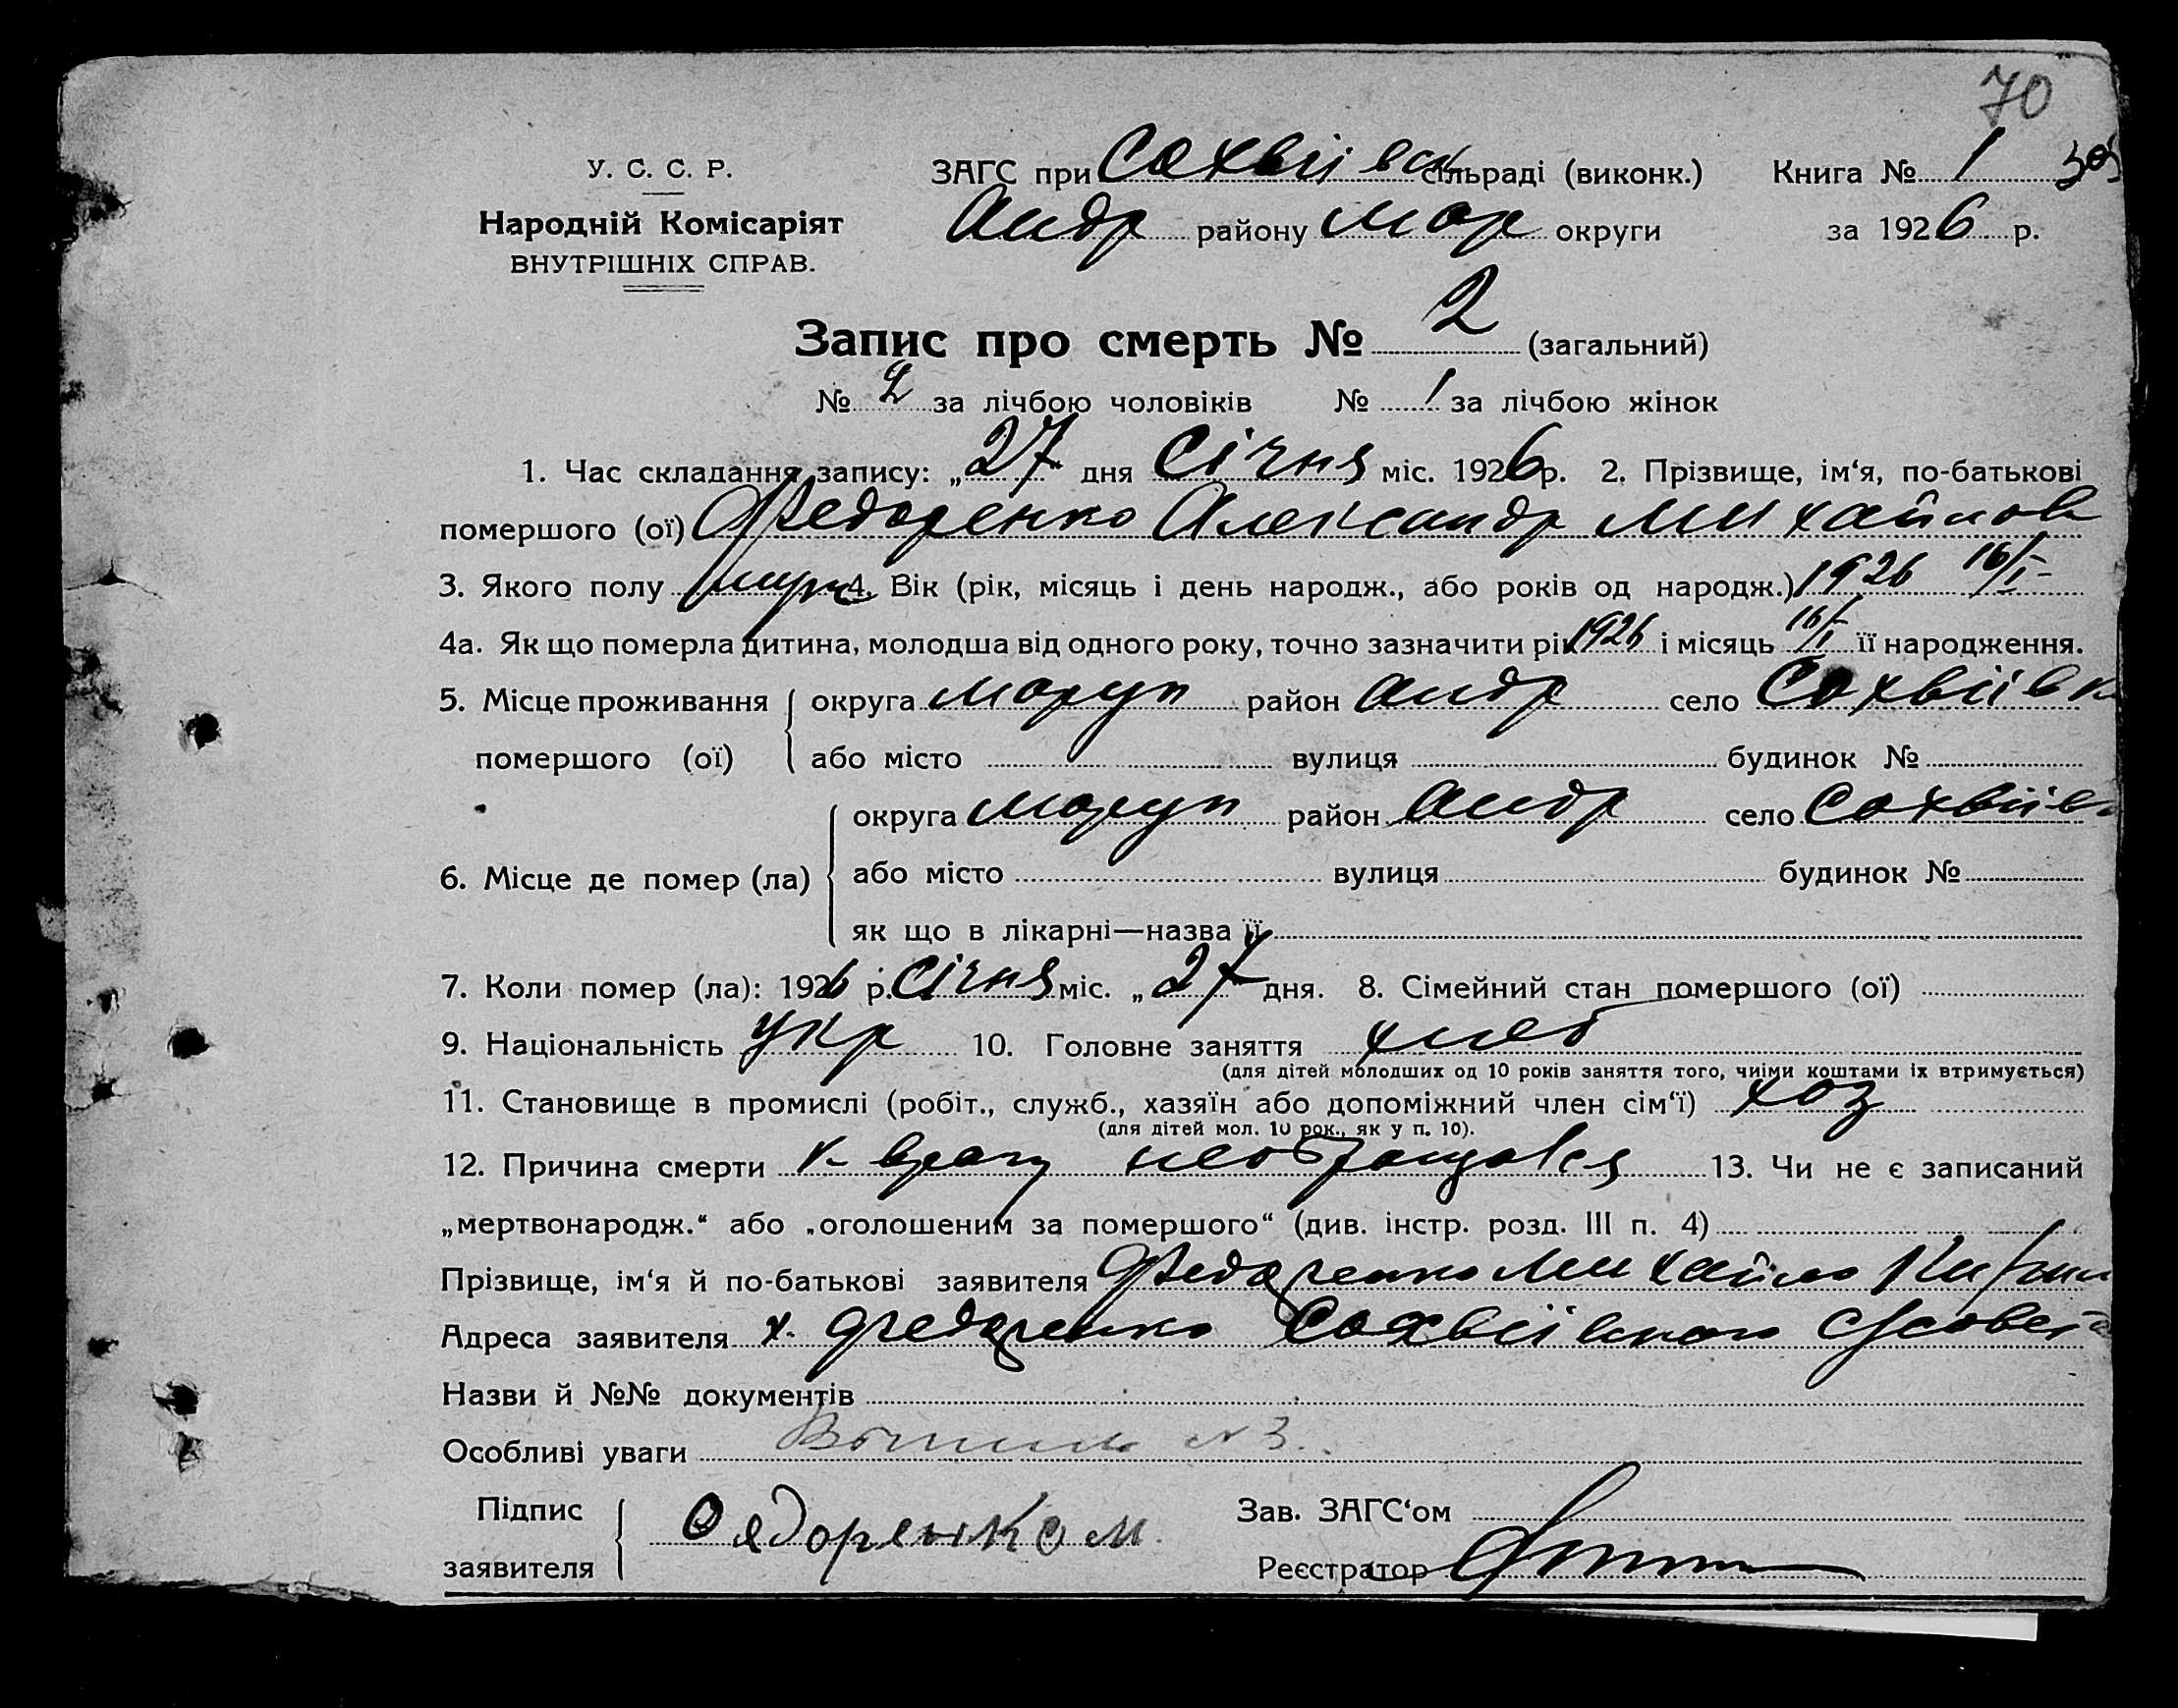 70
У. С. С. Р.
ЗАГС при Сохвіівск сільраді (виконк.) Книга № 1
Народній Комісаріят
Андр району Мар округи за 1926 р.
ВНУТРІШНІХ СПРАВ.
Запис про смерть № 2 (загальний)
№ 2 за лічбою чоловіків № 1 за лічбою жінок
1. Час складання запису: „ 27 дня Січня міс. 1926 р. 2. Прізвище, ім‘я, по-батькові
помершого (ої) Федоренко Александр Михайлов
3. Якого полу муж 4. Вік (рік, місяць і день народж., або років од народж.) 1926 16/I
4а. Як що померла дитина, молодша від одного року, точно зазначити рік 1926 і місяць 16/I її народження.
5. Місце проживання округа Мариуп район Андр село Сохвіівк
помершого (ої) або місто вулиця будинок №
округа Мариуп район Андр село Сохвіівк
6. Місце де помер (ла) або місто вулиця будинок №
як що в лікарні—назва її
7. Коли помер (ла): 1926 р. Січня міс. „ 27 дня. 8. Сімейний стан помершого (ої)
9. Національність Укр 10. Головне заняття хлеб
(для дітей молодших од 10 років заняття того, чиїми коштами їх втримується)
11. Становище в промислі (робіт., служб., хазяїн або допоміжний член сім‘ї) хоз
(для дітей мол. 10 рок., як у п. 10).
12. Причина смерти к врачу необращался 13. Чи не є записаний
„мертвонародж.“ або „оголошеним за помершого“ (див. інстр. розд. III п. 4)
Прізвище, ім‘я й по-батькові заявителя Федоренко Михайло
Адреса заявителя х. Федоренко Сохвіівского с/совета
Назви й №№ документів
Особливі уваги № 3.
Підпис Зав. ЗАГС‘ом
Федоренко М
заявителя Реєстратор